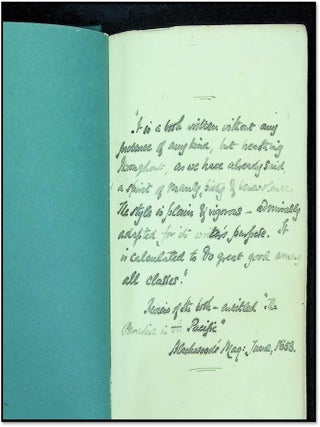 "It is a book written without any
pretence of any kind, but breathing
throughout, as we have already said
a spirit of manly, piety & benevolence.
The style is plain & vigorous – admirably
adapted for its writer's purpose. It
is calculated to do great good among
all classes."
Review of the book – entitled "The
Paradise in the Pacific"
Blackwood's Mag: June, 1853.